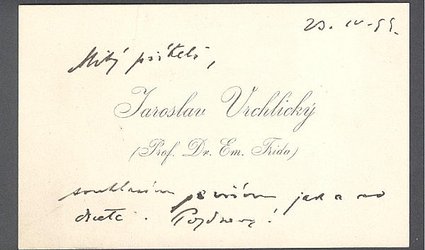 23. IV. 99.
Milý příteli,
Jaroslav Vrchlický
(Prof. Dr. Em. Frida)
souhlasím jak a
chcete. Pozdrav!